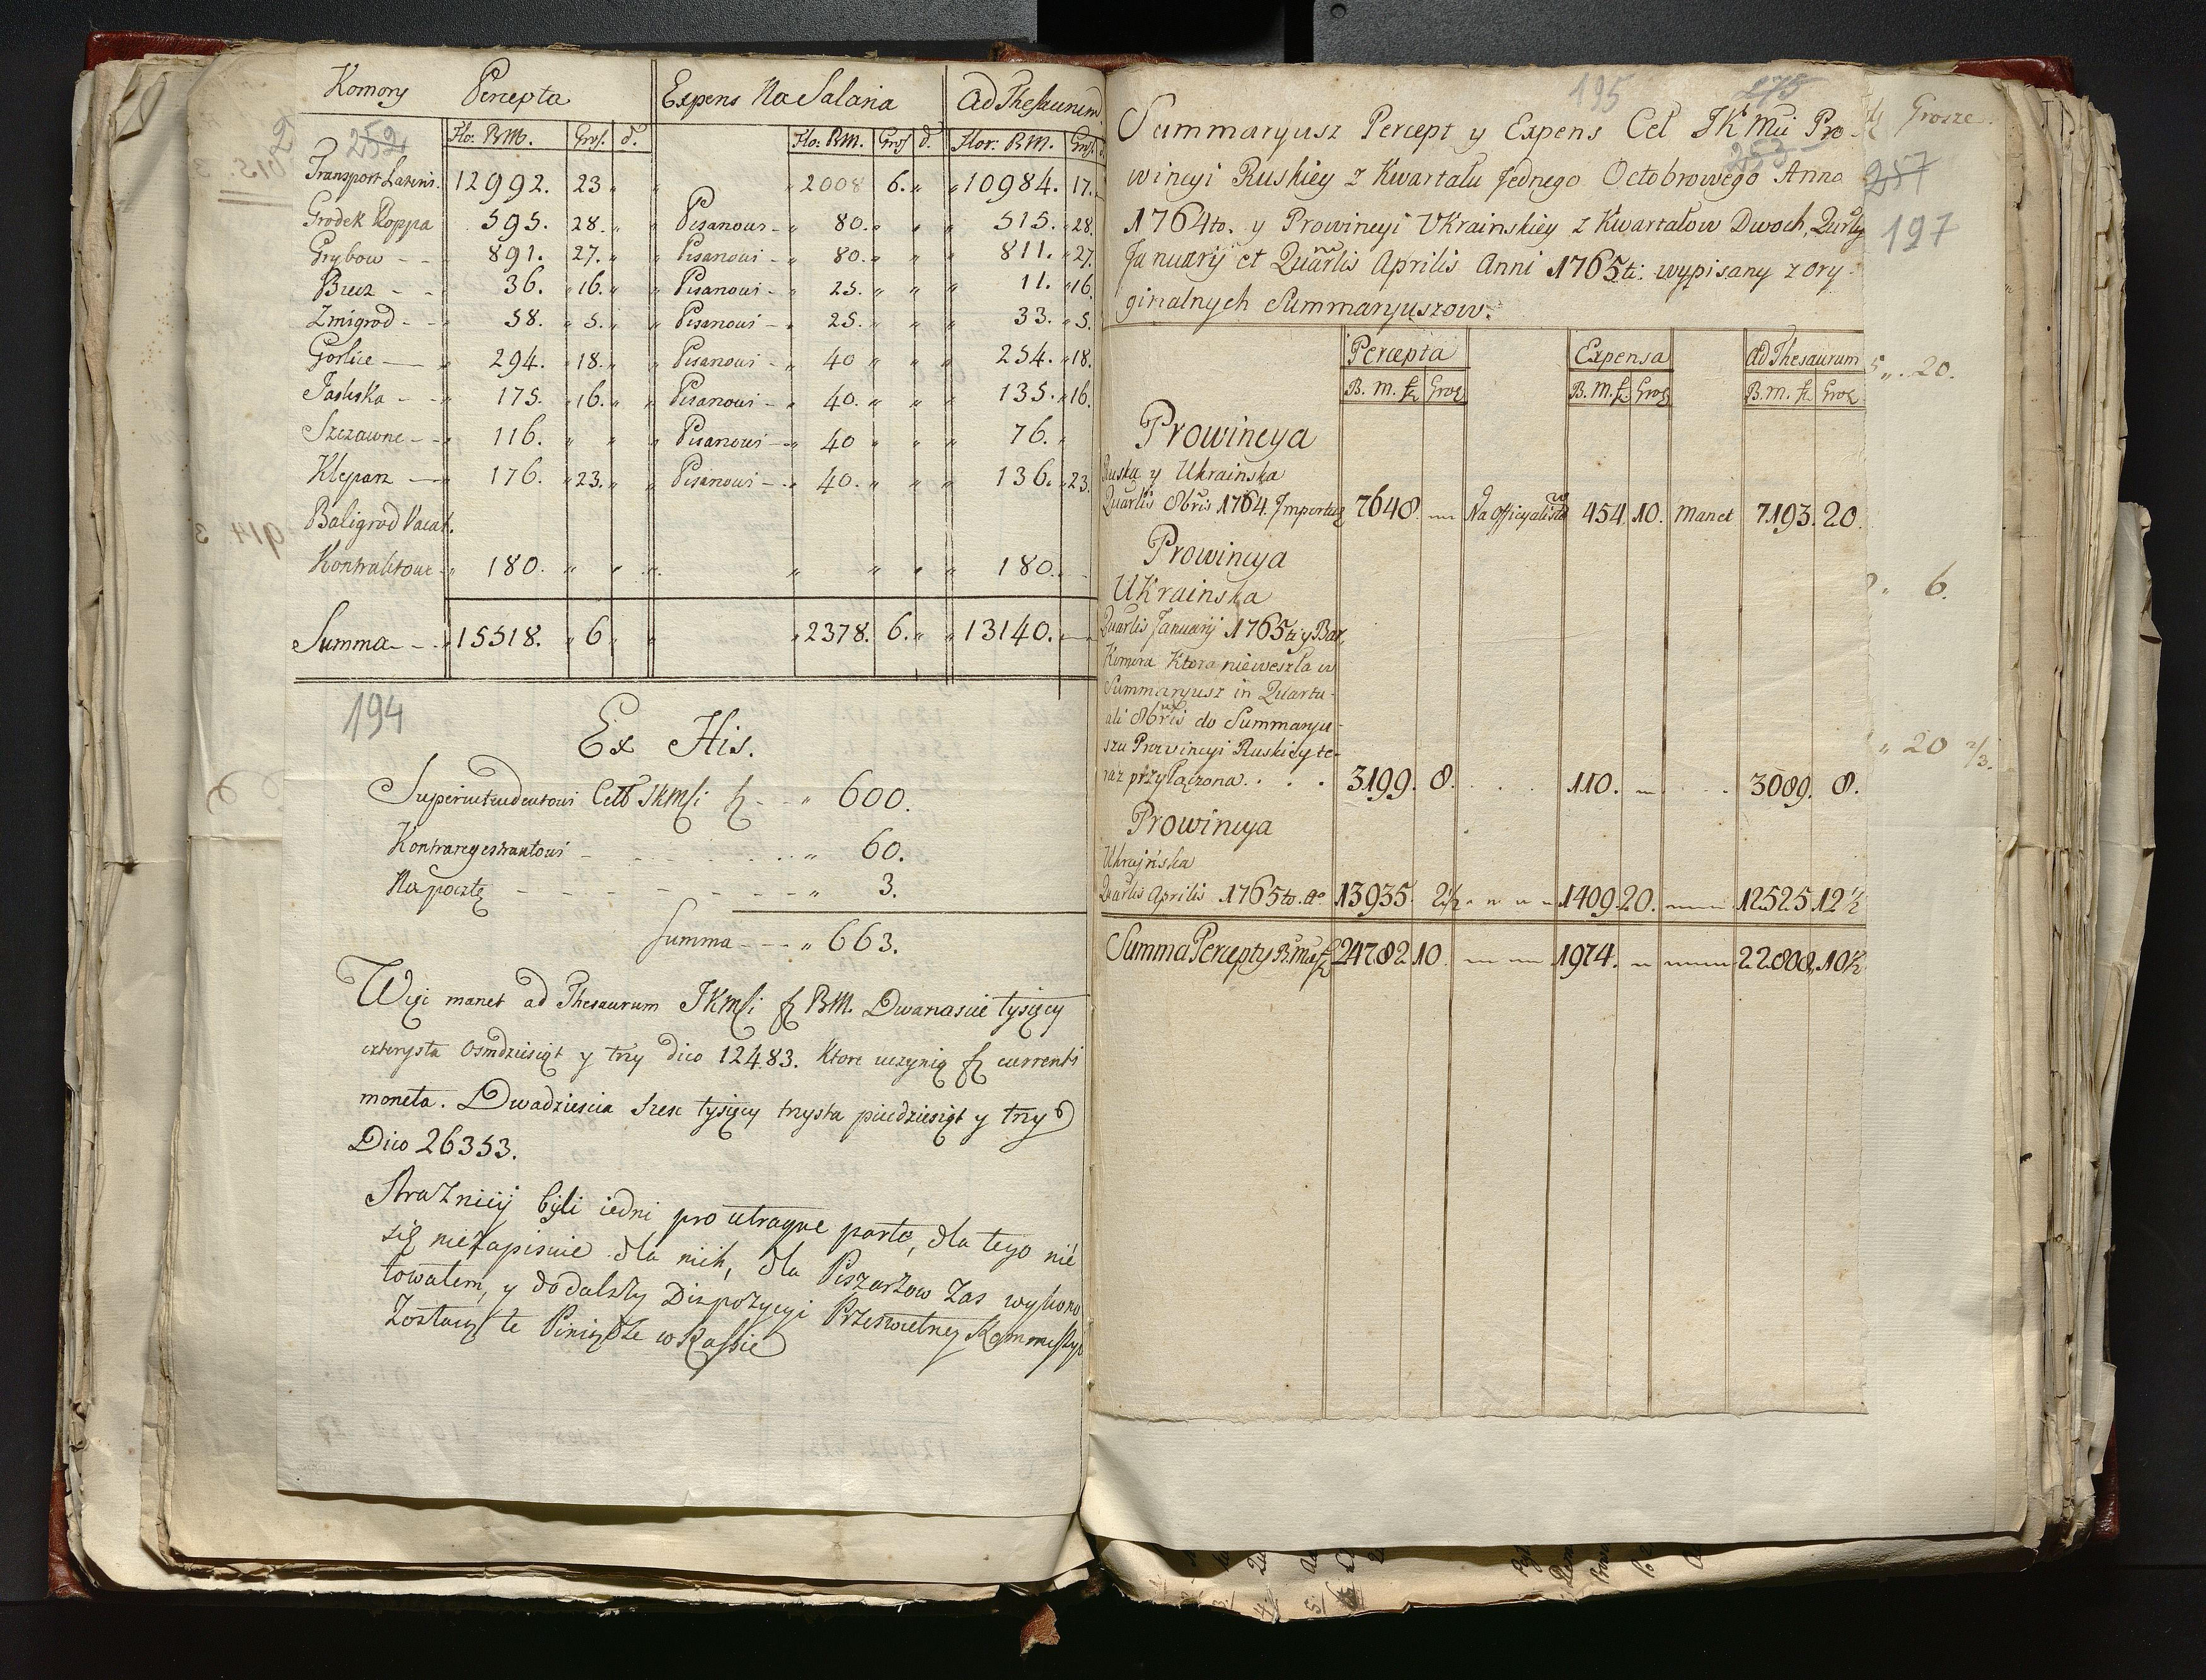 Komory Percepta Expens Na Salaria Ad Thesaurum
252 Flo: BM. Gros. d. Flo: BM. Gros d. Flor: BM. Gros d.
Transport Lateris. 12992. 23 " " " 2008 6. " " 10984. 17.
Grodek Roppa 595. 28. " " Pisarowi - " 80. " " 515. 28.
Grybow - - 891. 27. " " Pisarowi - " 80. " " 811. 27.
Biecz - - 36. " 16. " " Pisarowi - " 25. " " " 11. " 16.
Zmigrod - - " 58. " 5. " " Pisarowi - " 25. " " " 33. " 5.
Gorlice - " 294. " 18. " " Pisarowi - " 40 " " " 254. " 18.
Jasliska - - " 175. " 16. " " Pisarowi - " 40. " " " 135. " 16.
Szczawne - - " 116. " " " Pisarowi - " 40 " " " 76. "
Kleparz - " 176. " 23. " " Pisarowi - " 40. " " " 136. 23.
Baligrod Vacat.
Kontrabitowe - " 180. " " " " " " " 180. -
Summa - - - " 15518. " 6 " " " 2378. 6. " " 13140. -
194
Ex His.
Superintendentowi Cell JKMsi fl - - " 600.
Kontraregestrantowi - . . . . . " 60.
Na pocztę - - - - - - - " 3.
Summa - - - " 663.
Więc manet ad Thesaurum JKMsi fl BM. Dwanascie tysięcy
czterysta Osmdziesiąt y trzy dico 12483. Ktore uczynią fl currenti
moneta. Dwadziescia szesc tysięcy trzysta piedziesiąt y trzy
Dico 26353.
Straznicy byli iedni pro utraque parte, dla tego nie
się niezapisuie dla nich, dla Piszarzow zas wykono
towalem, y do dalszy Dizpozycyi Przeswietney Kommissyi
Zostaną te Piniądze w Kassie
195 275
Summaryusz Percept y Expens Cel JK Mci Pro-
253
wincyi Ruskiey z Kwartału Jednego Octobrowego Anno
1764to. y Prowincyi Ukrainskiey z Kwartałow Dwoch, Qurlij
Januarij et Quarlis Aprilis Anni 1765ti: wypisany z ory-
ginalnych Summaryuszow.
Percepta Expensa ad Thesaurum
B. M. fl Groz B. M. fl Groz B. M. fl Groz
Prowincya
Ruska y Ukrainska
Quarlis 8bris 1764. Importuie 7648. - Na Officyalistow 454. 10. Manet 7193. 20.
Prowincya
Ukrainska
Quarlis Januarij 1765ti y Bar
Komora Ktora nieweszła w
Summaryusz in Quartu-
ali 8bris do Summaryu-
szu Prowincyi Ruskiey te-
raz przyłączona. . . . 3199. 8. . . . 110. - . . 3089. 8.
Prowincya
Ukraińska
Quarlis Aprilis 1765to. Ao. 13935. 2½ - - - - 1409. 20. - 12525. 12½
Summa Percepty B. Mci fl 24782. 10. - - 1974. - - 22808. 10½
Grosze.
257
197
5 " . 20.
" 6.
" 20 2/3.